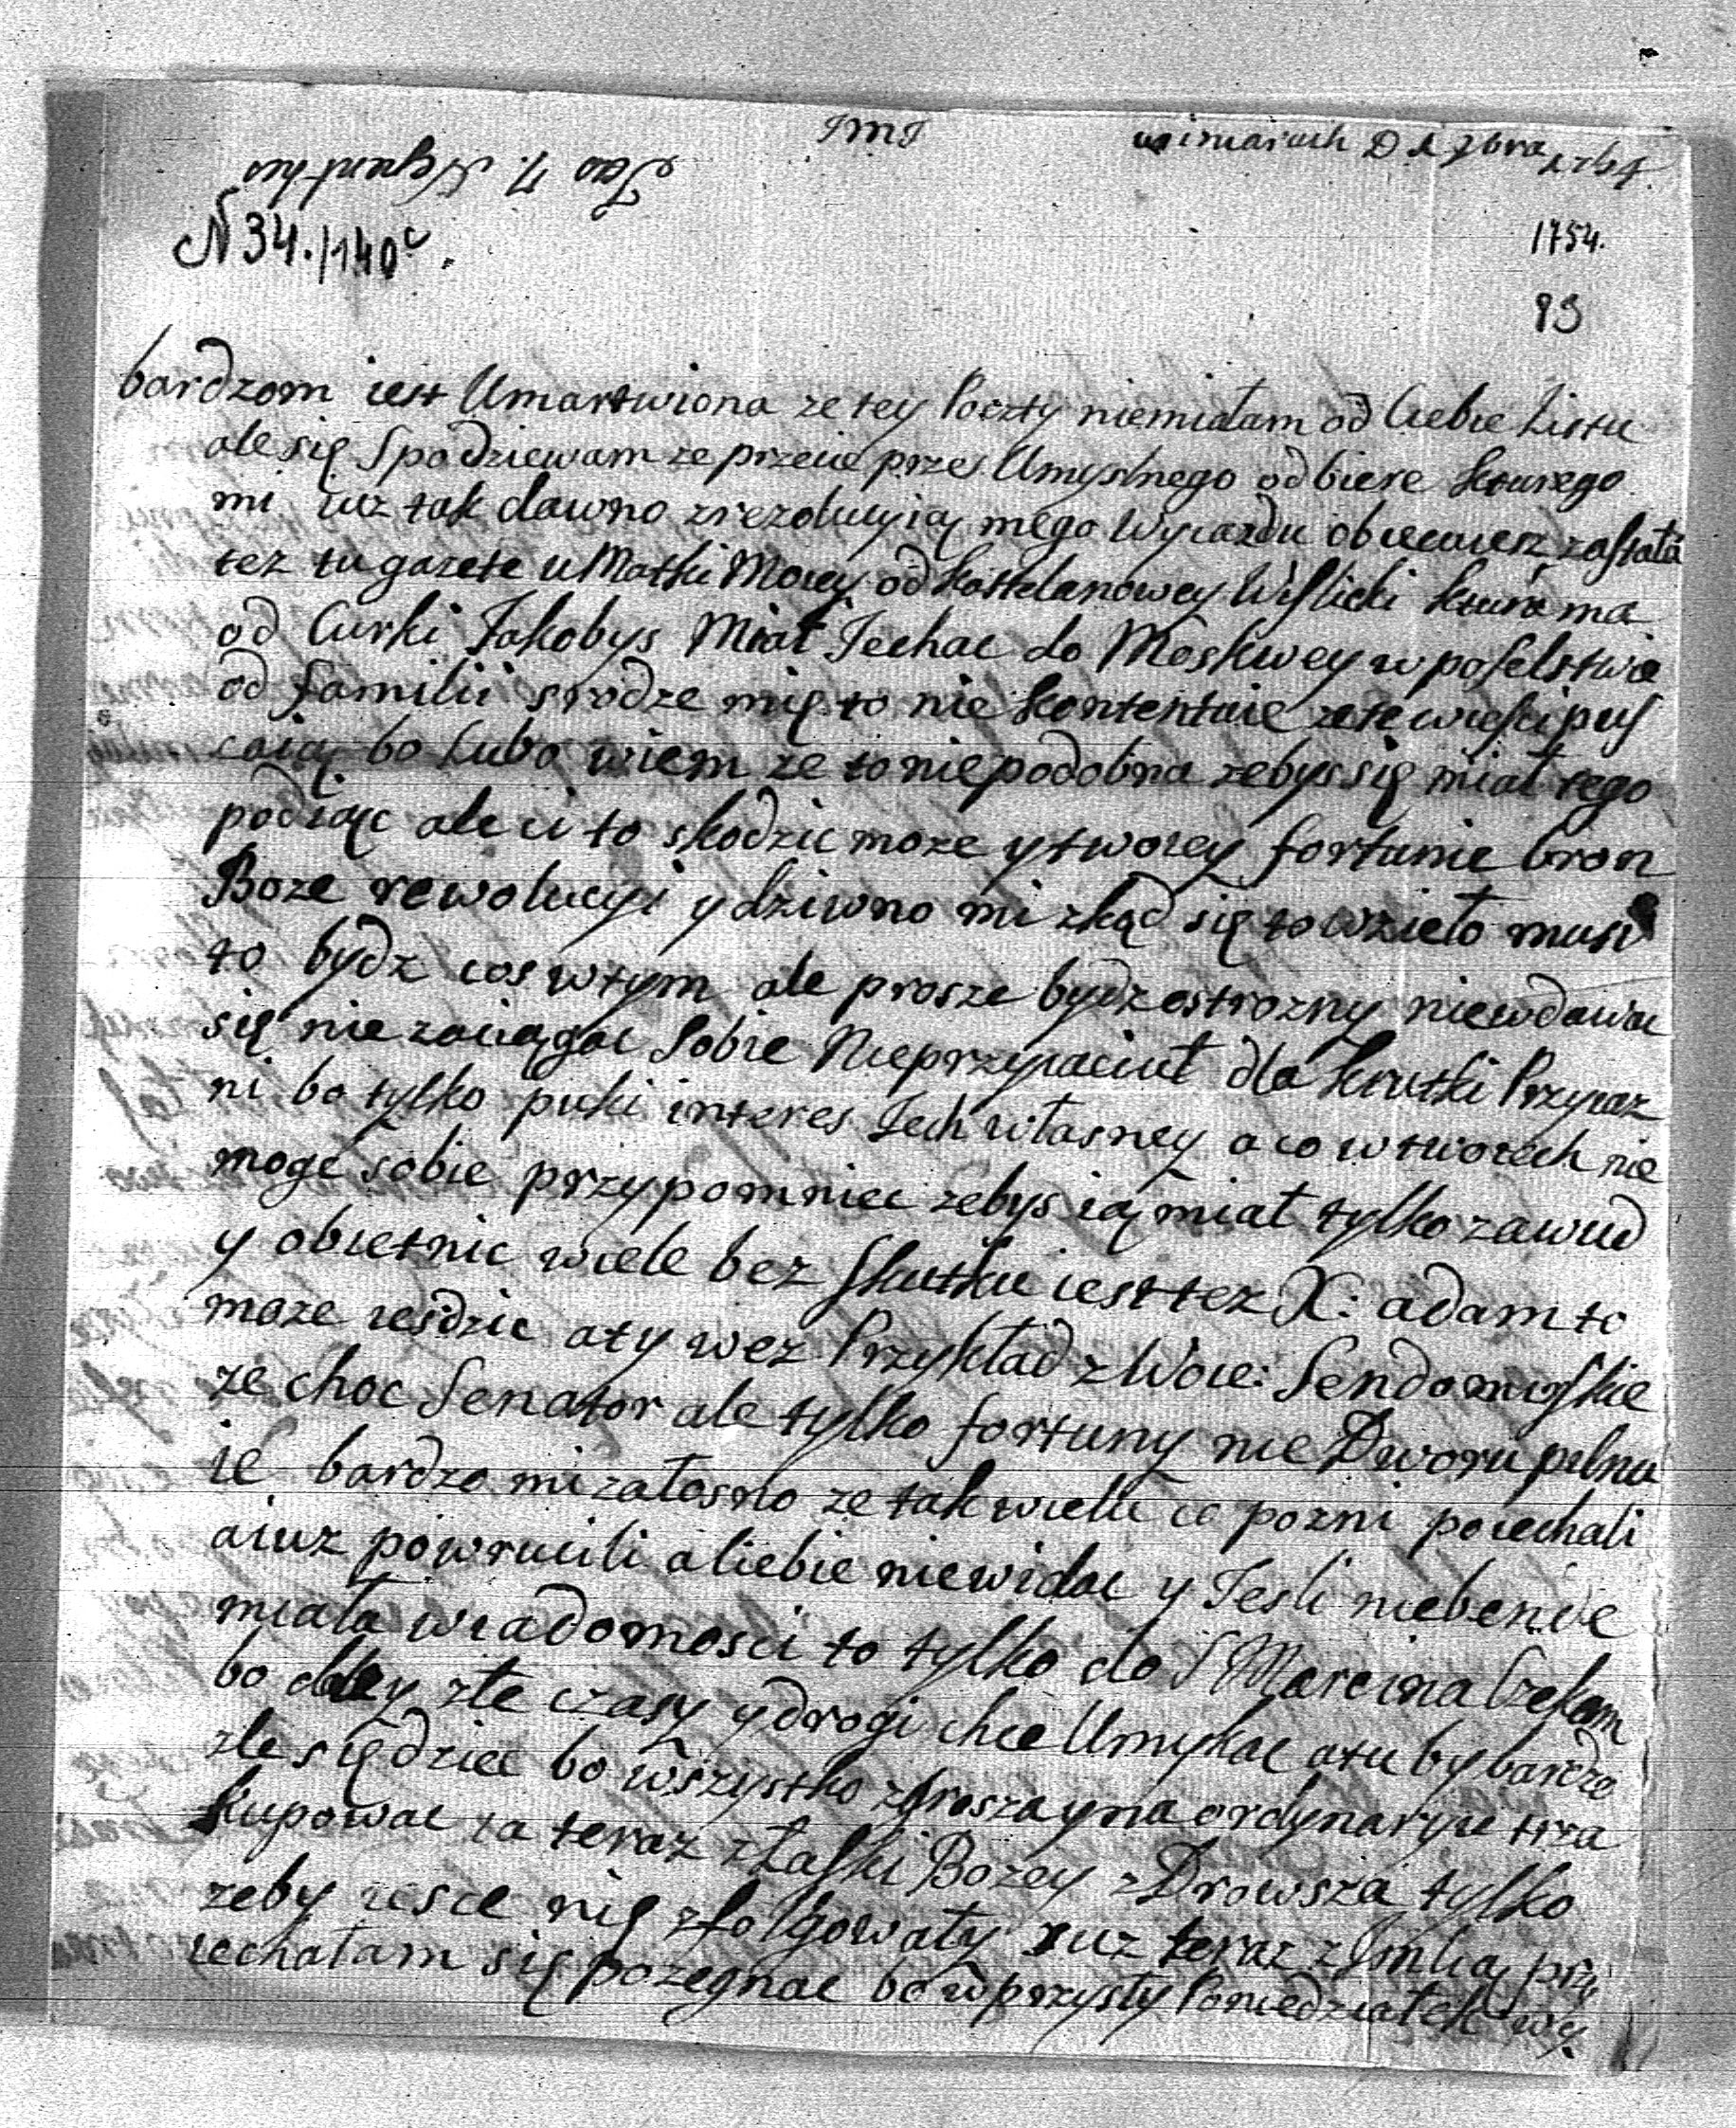 JMJ
w imiarach D 1 9bra 1754.
N 34./140c.
1754.
93
bardzom iest Umartwiona ze tey Poczty niemiałam od Ciebie Listu
ale się Spodziewam ze przecie przes Umyslnego odbiere kturego
mi iuz tak dawno z rezolucyią mego Wyiazdu obiecuiesz zastała
tez tu gazete u Matki Moiey od kasztelanowey Wislicki ktura ma
od Curki Jakobys Miał Jechac do Moskwey w poselstwie
od familii srodze mię to nie kontentuie ze te wiesci pus
caią bo Lubo wiem ze to niepodobna zebys się miał tego
podiąc ale ci to skodzic moze y twoiey fortunie bron
Boze rewolucyi y dziwno mi zkąd się to wzieło musi
to bydz cos wtym ale prosze bydz ostrozny niewdawac
się nie zaciągac sobie Nieprzyiaciuł dla krutki Przyiaz
ni bo tylko puki interes Jech własney a co w twoiech nie
moge sobie przypomniec zebys ią miał tylko zawud
y obietnic wiele bez skutku iest tez X: adam to
moze iesdzic a ty wez Przykład z Woie: Sendomirskie
ze choc Senator ale tylko fortuny nie Dworu pilnu
ie bardzo mi załosno ze tak wielu co pozni poiechali
a iuz powrucili a Ciebie niewidac y Jesli niebende
miała wiadomosci to tylko do S Marcina Czekam
bo złe czasy y drogi chce Umykac a tu by bardzo
zle siędziec bo wszystko z grosza y na ordynaryie trza
kupowac ia teraz z Łaski Bozey zDrowsza tylko
zeby iesce nię zfolgowały iuz teraz z Jmlią przy
iechałam się pozegnac bo w przysły Poniedziałek wy